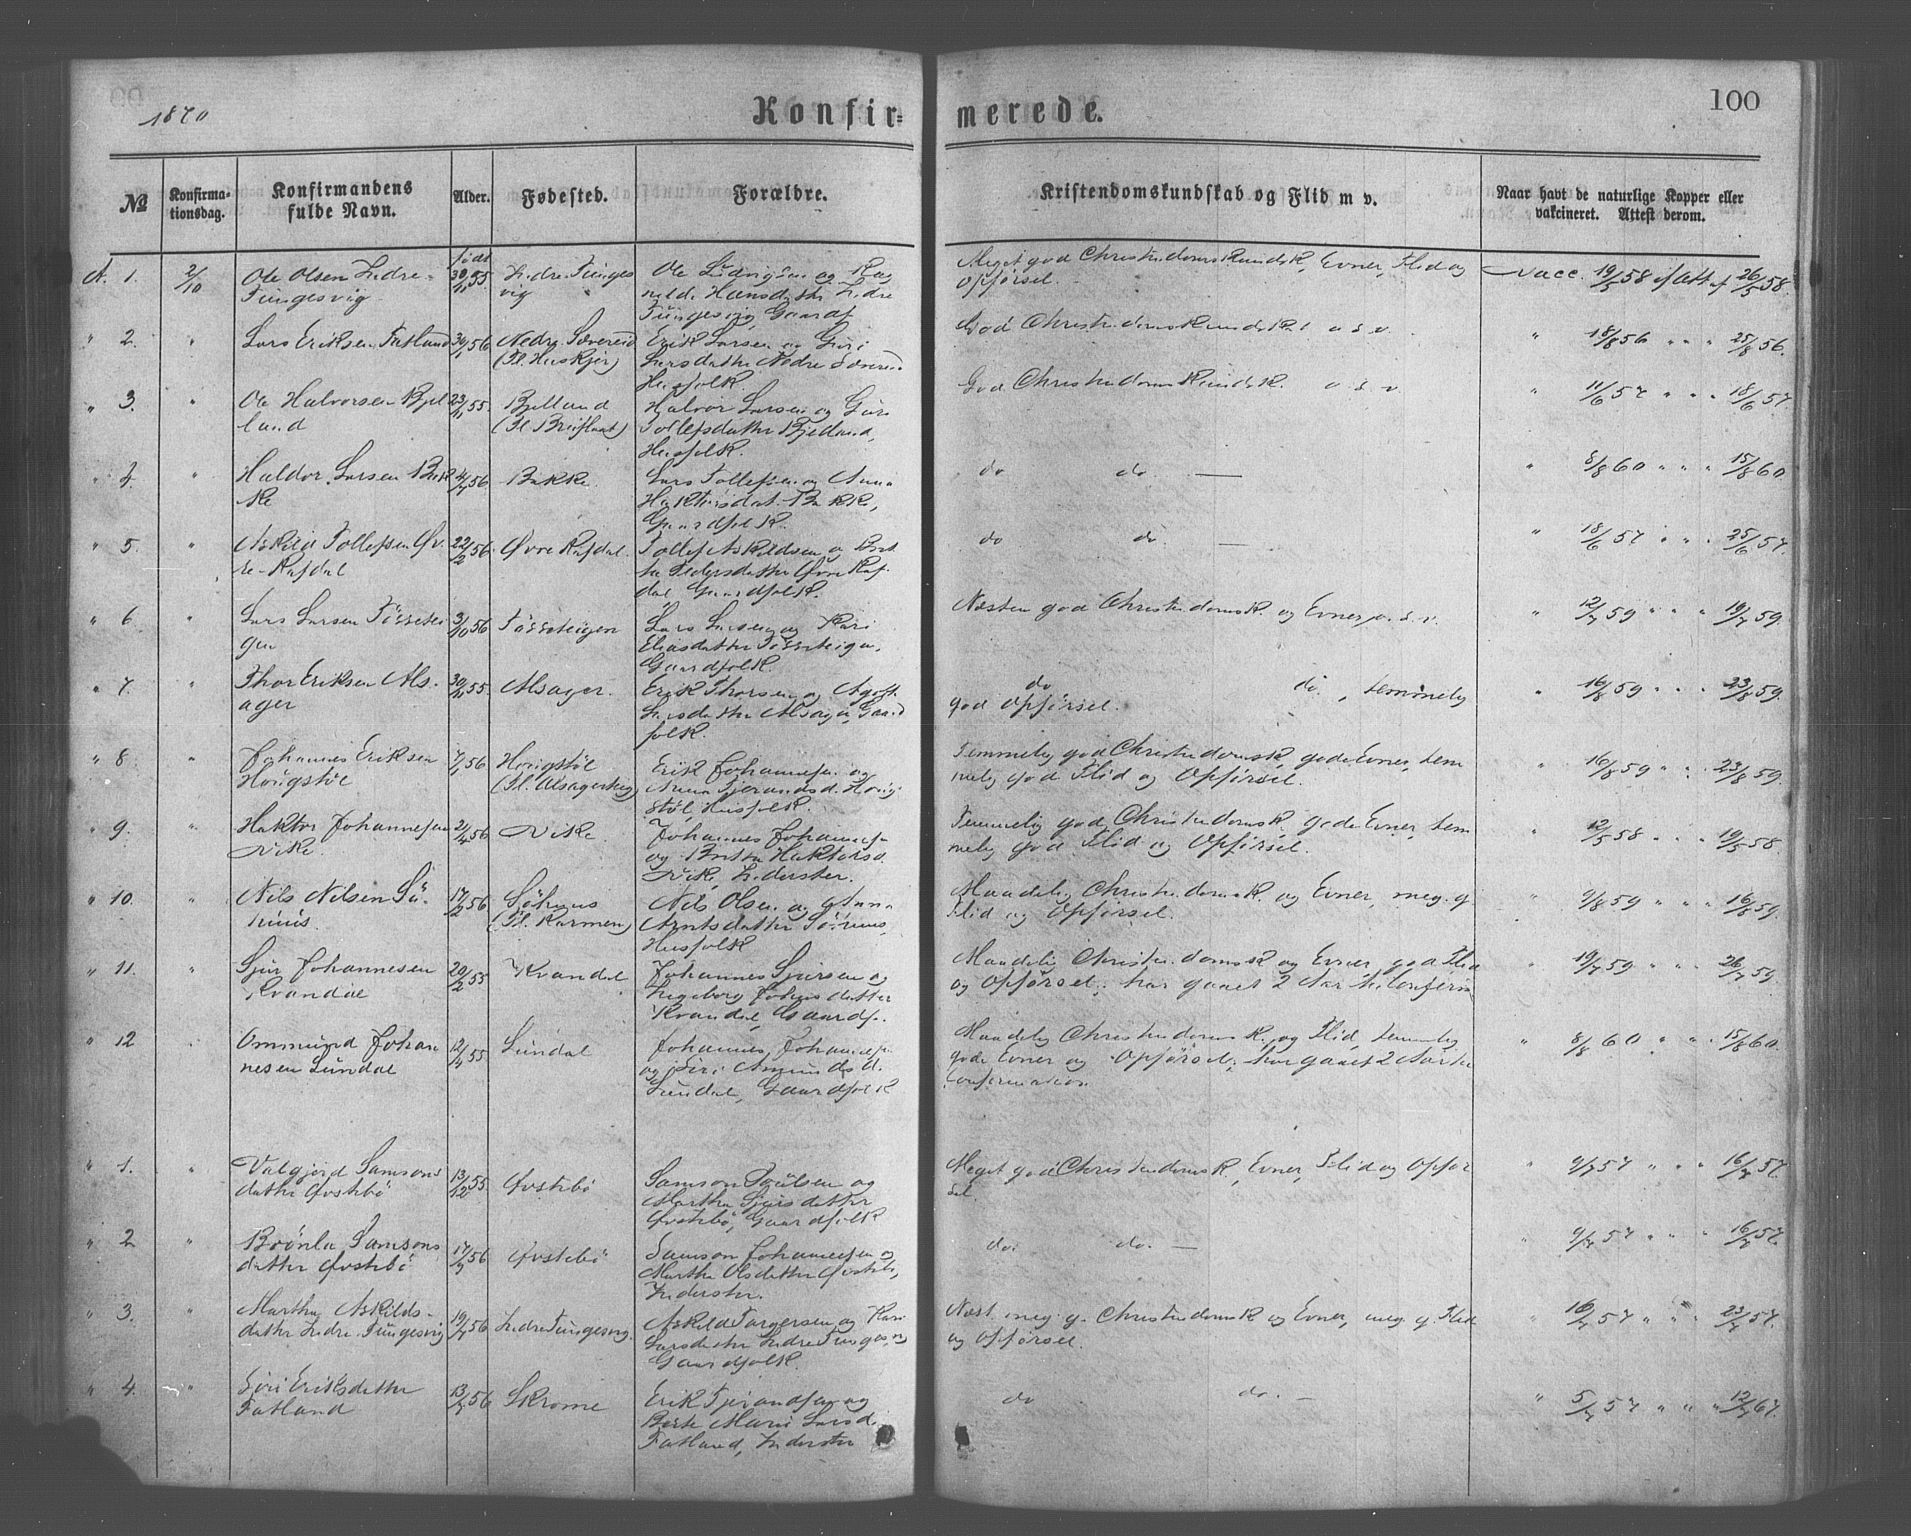 1870
Konfir=
merede.
100
№
Konfirma-
tionsdag.
Konfirmandens
fulde Navn.
Alder.
Fødested.
Forældre.
Kristendomskundskab og Flid m v.
Naar havt de naturlige Kopper eller
vakcineret. Attest derom.
1. 2/10 Ole Olsen Indre Tungesvig født 30/11 55 Indre Tungesvig Ole Ludvigsen og
Hansdatter Indre Tungesvig, Gaardf. Meget god Christendomskundsk, Evner, Flid og Opførsel. Vacc. 19/5 58 Att af 26/5 58.
" 2. " Lars Eriksen Fatland 30/1 56 Nedre Sævereid
Erik Larsen og Guri Larsdatter Nedre
Husfolk. God Christendomskundsk. o s v. " 18/8 56 " " 25/8 56.
" 3. " Ole Halvorsen Bjelland 23/11 55. Bjelland
Halvor Larsen og
Tollefsdatter Bjelland, Husfolk. God Christendomskundsk. o s v " 11/6 57 " " 18/6 57.
" 4. " Haldor Larsen Bakke 4/7 56 Bakke. Lars Tollefsen og Anna
Bakke, Gaardfolk. do do — " 8/8 60 " " 15/8 60
" 5. " Askild Tollefsen Øvre-Rafdal 22/2 56. Øvre Rafdal. Tollef Askildsen og
Pedersdatter Øvre Rafdal Gaardfolk. do do. — " 18/6 57 " " 25/6 57.
" 6 " Lars Larsen Tøssteigen 3/10 56 Tøssteigen Lars Larsen og Kari
Eliasdatter Tøssteigen, Gaardfolk. Næsten god Christendomsk. og Evner, o. s. v. " 12/7 59 " " 19/7 59.
" 7. " Thor Eriksen Alsager 30/11 55. Alsager. Erik Thorsen og
Larsdatter Alsager, Gaardfolk. do do, temmelig god Opførsel. " 16/8 59 " " 23/8 59.
" 8 " Johannes Eriksen Hougstøl 7/1 56 Hougstøl
Erik Johannesen og
Anna Hougstøl, Husfolk. Temmelig god Christendomsk, gode Evner, temmelig god Flid og Opførsel. " 16/8 59 " " 23/8 59.
" 9. " Haktor Johannesen Vike 2/4 56 Vike Johannes Johannesen
og Britta Haktorsd. Vike, Inderster. Temmelig god Christendomsk. gode Evner, temmelig god Flid og Opførsel. " 12/5 58 " " 19/5 58.
" 10. " Nils Nilsen 17/2 56
Nils Olsen og Anna
Arntsdatter
Husfolk Maadelig Christendomsk. og Evner, meg. g. Flid og Opførsel. 9/8 59 " " 16/8 59.
" 11. " Sjur Johannesen Kvandal 20/2 55 Kvandal Johannes Sjursen og
Ingeborg Kvandal, Gaardf. Maadelig Christendomsk og Evner, god Flid og Opførsel; har gaaet 2 Aar til Confirm " 19/7 59 " " 26/7 59
" 12 Ommund Johannesen Lundal 12/4 55 Lundal Johannes Johannesen
og Siri Amundsd. Lundal, Gaardfolk Maadelig Christendomsk. og Flid, temmelig gode Evner og Opførsel; har gaaet 2 Aar til Confirmation " 8/8 60 " " 15/8 60
" 1. " Valgjerd Samsons datter Øvstebø 13/12 55 Øvstebø Samson Poulsen og
Martha Sjursdatter Øvstebø, Gaardfolk Meget god Christendomsk, Evner, Flid og Opførsel. " 9/7 57 " " 16/7 57.
" 2 " Brønla Samsons datter Øvstebø 17/7 56 Øvstebø Samson Johannesen og
Martha Olsdatter Øvstebø, Inderster. do. do. — " 9/7 57 " " 16/7 57.
" 3. " Martha Askilds-datter Indre Tungesvig 19/7 56 Indre Tungesvig. Askild Torgersen og Kari
Larsdatter Indre Tungesvig Gaardfolk. Næst. meg. g. Christendomsk og Evner, meg g Flid og Opførsel. " 16/7 57 " " 23/7 57.
" 4. " Siri Eriksdatter Fatland 13/7 56 Skrome Erik Tjerandsen og
Berte Marie Larsd. Fatland, Inderster do do. — " 5/7 57 " " " 12/7 67.